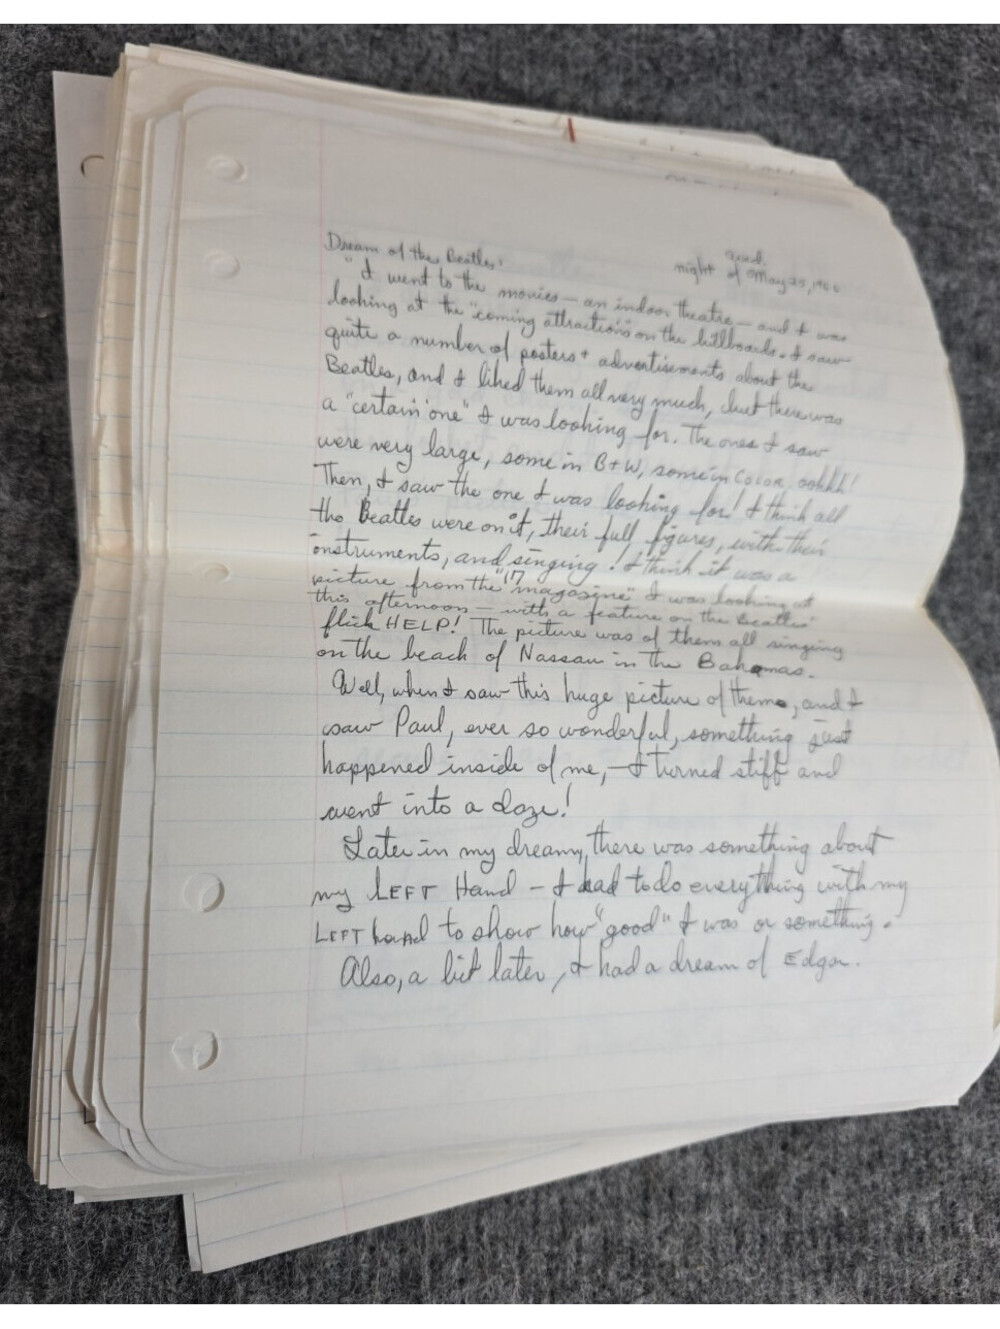 Dream of the Beatles:
Wed.
night of May 25, 1966
"I went to the movies — an indoor theatre — and I was
looking at the "coming attractions" on the billboards. I saw
quite a number of posters + advertisements about the
Beatles, and I liked them all very much, but there was
a "certain one" I was looking for. The ones I saw
were very large, some in B+W, some in COLOR. oohhh!
Then, I saw the one I was looking for! I think all
the Beatles were on it, their full figures, with their
instruments, and singing! I think it was a
picture from the "17 magazine" I was looking at
this afternoon — with a feature on the Beatles'
flick HELP! The picture was of them all singing
on the beach of Nassau in the Bahamas.
Well, when I saw this huge picture of them, and I
saw Paul, ever so wonderful, something just
happened inside of me, — I turned stiff and
went into a daze!
Later in my dream, there was something about
my LEFT Hand - I had to do everything with my
LEFT hand to show how "good" I was or something.
Also, a bit later, I had a dream of Edgar.